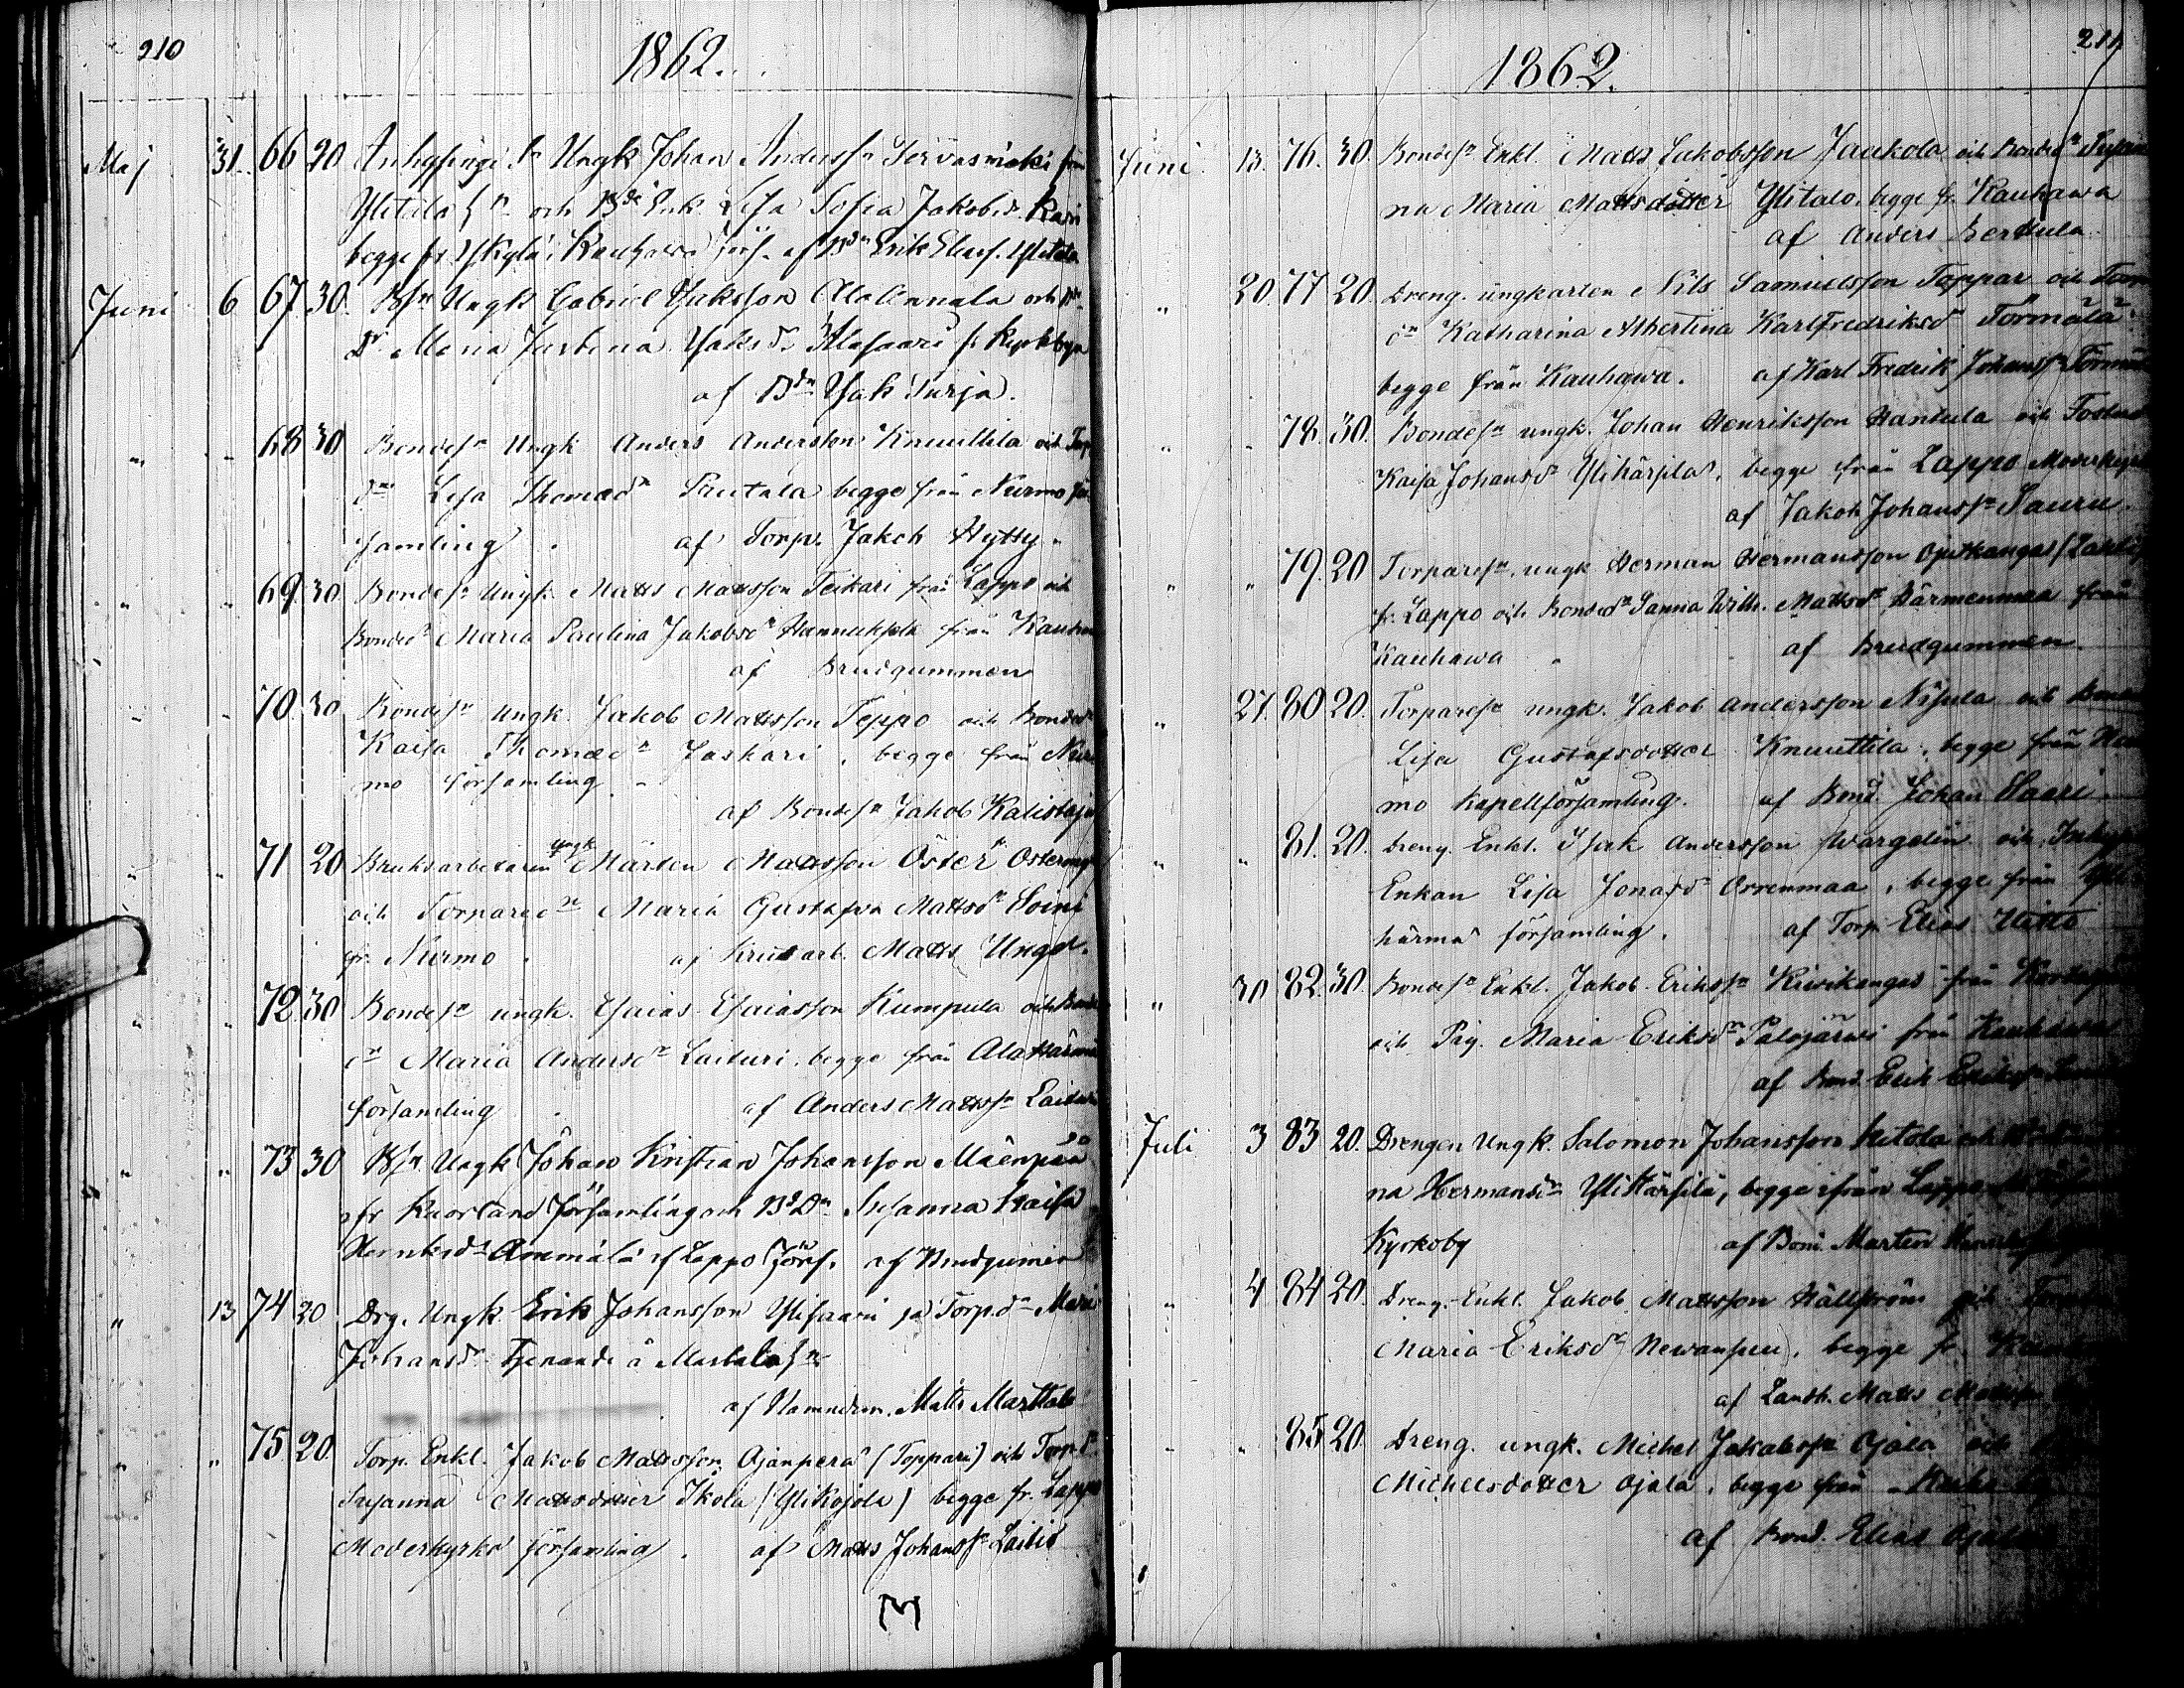 210
1862.
Maj 31. 66 20 Inhysinge Sn Ungk Johan Anderss. Tervasmäki från
Ylitalo hn och Bde Enk. Lisa Sofia Jakobsd.
begge fr Ylikylä i Kauhava förs. af Bdn Erik Eliess. Ylitalo
Juni 6 67. 30. Bsn Ungk Gabriel Isaksson Ala Annala och
Dr Maria Justina Isaksd. Alasaari fr Kyrkbyn
af Bdn Isak Turja.
" " 68 30 Bondesn Ungk Anders Andersson Knuuttila och Torp
dr Lisa Thomædr Puutala begge från Nurmo för
samling. af Torp. Jakob Hytty.
" " 69. 30. Bondesn Ungk. Matts Mattsson Teikari från Lappo och
Bondedr Maria Paulina Jakobsdr Hannuksela från Kauha
af Brudgummen
" " 70. 30 Bondesn Ungk. Jakob Mattsson Teppo och Bondedr
Kaisa Thomædr Jaskari, begge från Nur
mo församling.
af Bondesn Jakob Kalistaja
" " 71 20 Bruksarbetaren Ungk Mårten Mattsson Öster fr Östermyra
och Torparedr Maria Gustafva Mattsdr Soini
fr. Nurmo. af Krutarb. Matts Unger.
" " 72. 30 Bondesn ungk. Esaias Esaiasson Kumpula och Bonde
dr Maria Andersdr Laituri, begge från Alahärmä
församling. af Anders Mattssn Laituri
" " 73 30 Bsn Ungk Johan Kristian Johansson Mäenpää
fr Kuortane församling och BdDr Susanna Kaisa
Henriksdr Ammälä fr Lappo förs. af Brudgumen
" 13 74 20 Drg. Ungk. Erik Johansson Ylisaari och Torp.dr Maria
Johansdr Tjenande å Marttala hn
af Nämndem. Matts Marttala
" " 75. 20. Torp. Enkl. Jakob Mattsson Ojanperä (Toppari) och Torp.dr
Susanna Mattsdotter Ikola (Ylikojola) begge fr. Lappo
Moderkyrko församling. af Matts Johanssn Laitis
211
1862.
Juni 13. 76. 30. Bondesn Enkl. Matts Jakobsson Jaakola och Bondedr Susan
na Maria Mattsdotter Ylitalo, begge fr. Kauhawa
af Anders Berttula.
" 20. 77 20. Dreng. ungkarlen Nils Samuelsson Toppar och Torp
dr Katharina Albertina Karlfredriksdr Törmälä
begge från Kauhawa. af Karl Fredrik Johanssn Törmälä
" " 78. 30. Bondesn ungk. Johan Henriksson Hantula och
Kaisa Johansdr Ylihärsilä, begge från Lappo Moderkyrko
af Jakob Johanssn Sauru.
" " 79. 20 Torparesn, ungk Herman Hermansson Ojutkangas
fr. Lappo och Bondedr Sanna Wilh. Mattsdr Härmenmaa från
Kauhawa af Brudgummen.
" 27. 80 20. Torparesn ungk. Jakob Andersson Nisula och Bonde
Lisa Gustafsdotter Knuuttila, begge från Nur
mo Kapellförsamling. af Bond. Johan Saari.
" " 81. 20. Dreng. Enkl. Isak Andersson Wargelin och Inhys
Enkan Lisa Jonasdr Orrenmaa, begge från Yli
härmä församling. af Torp. Elias
" 30 82. 30. Bondesn Enkl. Jakob Erikssn Kivikangas från
och Pig. Maria Eriksdr Palojärwi från Kauhawa
af Bond. Erik Erikssn
Juli 3 83 20. Drengen Ungk. Salomon Johansson och
na Hermansdr Ylihärsilä, begge ifrån Lappo
Kyrkoby af Bond. Mårten
" 4 84 20. Dreng. Enkl. Jakob Mattsson Hällström och
Maria Eriksdr Newanpuu, begge fr.
af Lantb. Matts
" " 85 20. Dreng. ungk. Michel Jakobssn Ojala och
Michelsdotter Ojala, begge från
af Bond. Elias Ojala